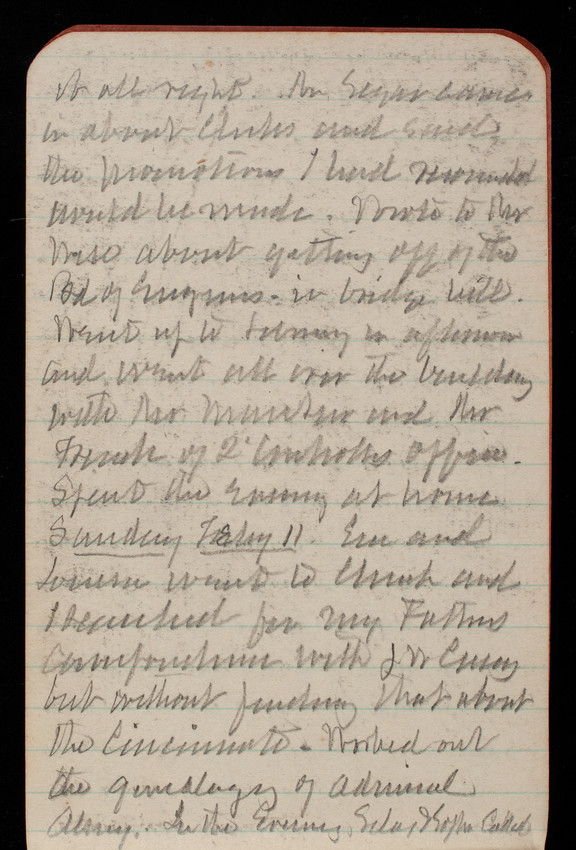 it all right. Mr Segar came
in about Clerks and said
the promotions I had
would be made. Wrote to Mr
Wise about getting off of the
Bd of Engrns. in bridge bill.
Went up to in afternoon
and went all over the building
with Mr and Mr
French of 2d Controllers office.
Spent the Evening at home
Sunday Feby 11. Em and
Louisa went to Church and
I searched for my Fathers
Correspondence with J W
but without finding that about
the Cincinnati. Worked out
the genealogy of Admiral
Almy. In the Evening & Sophie Called